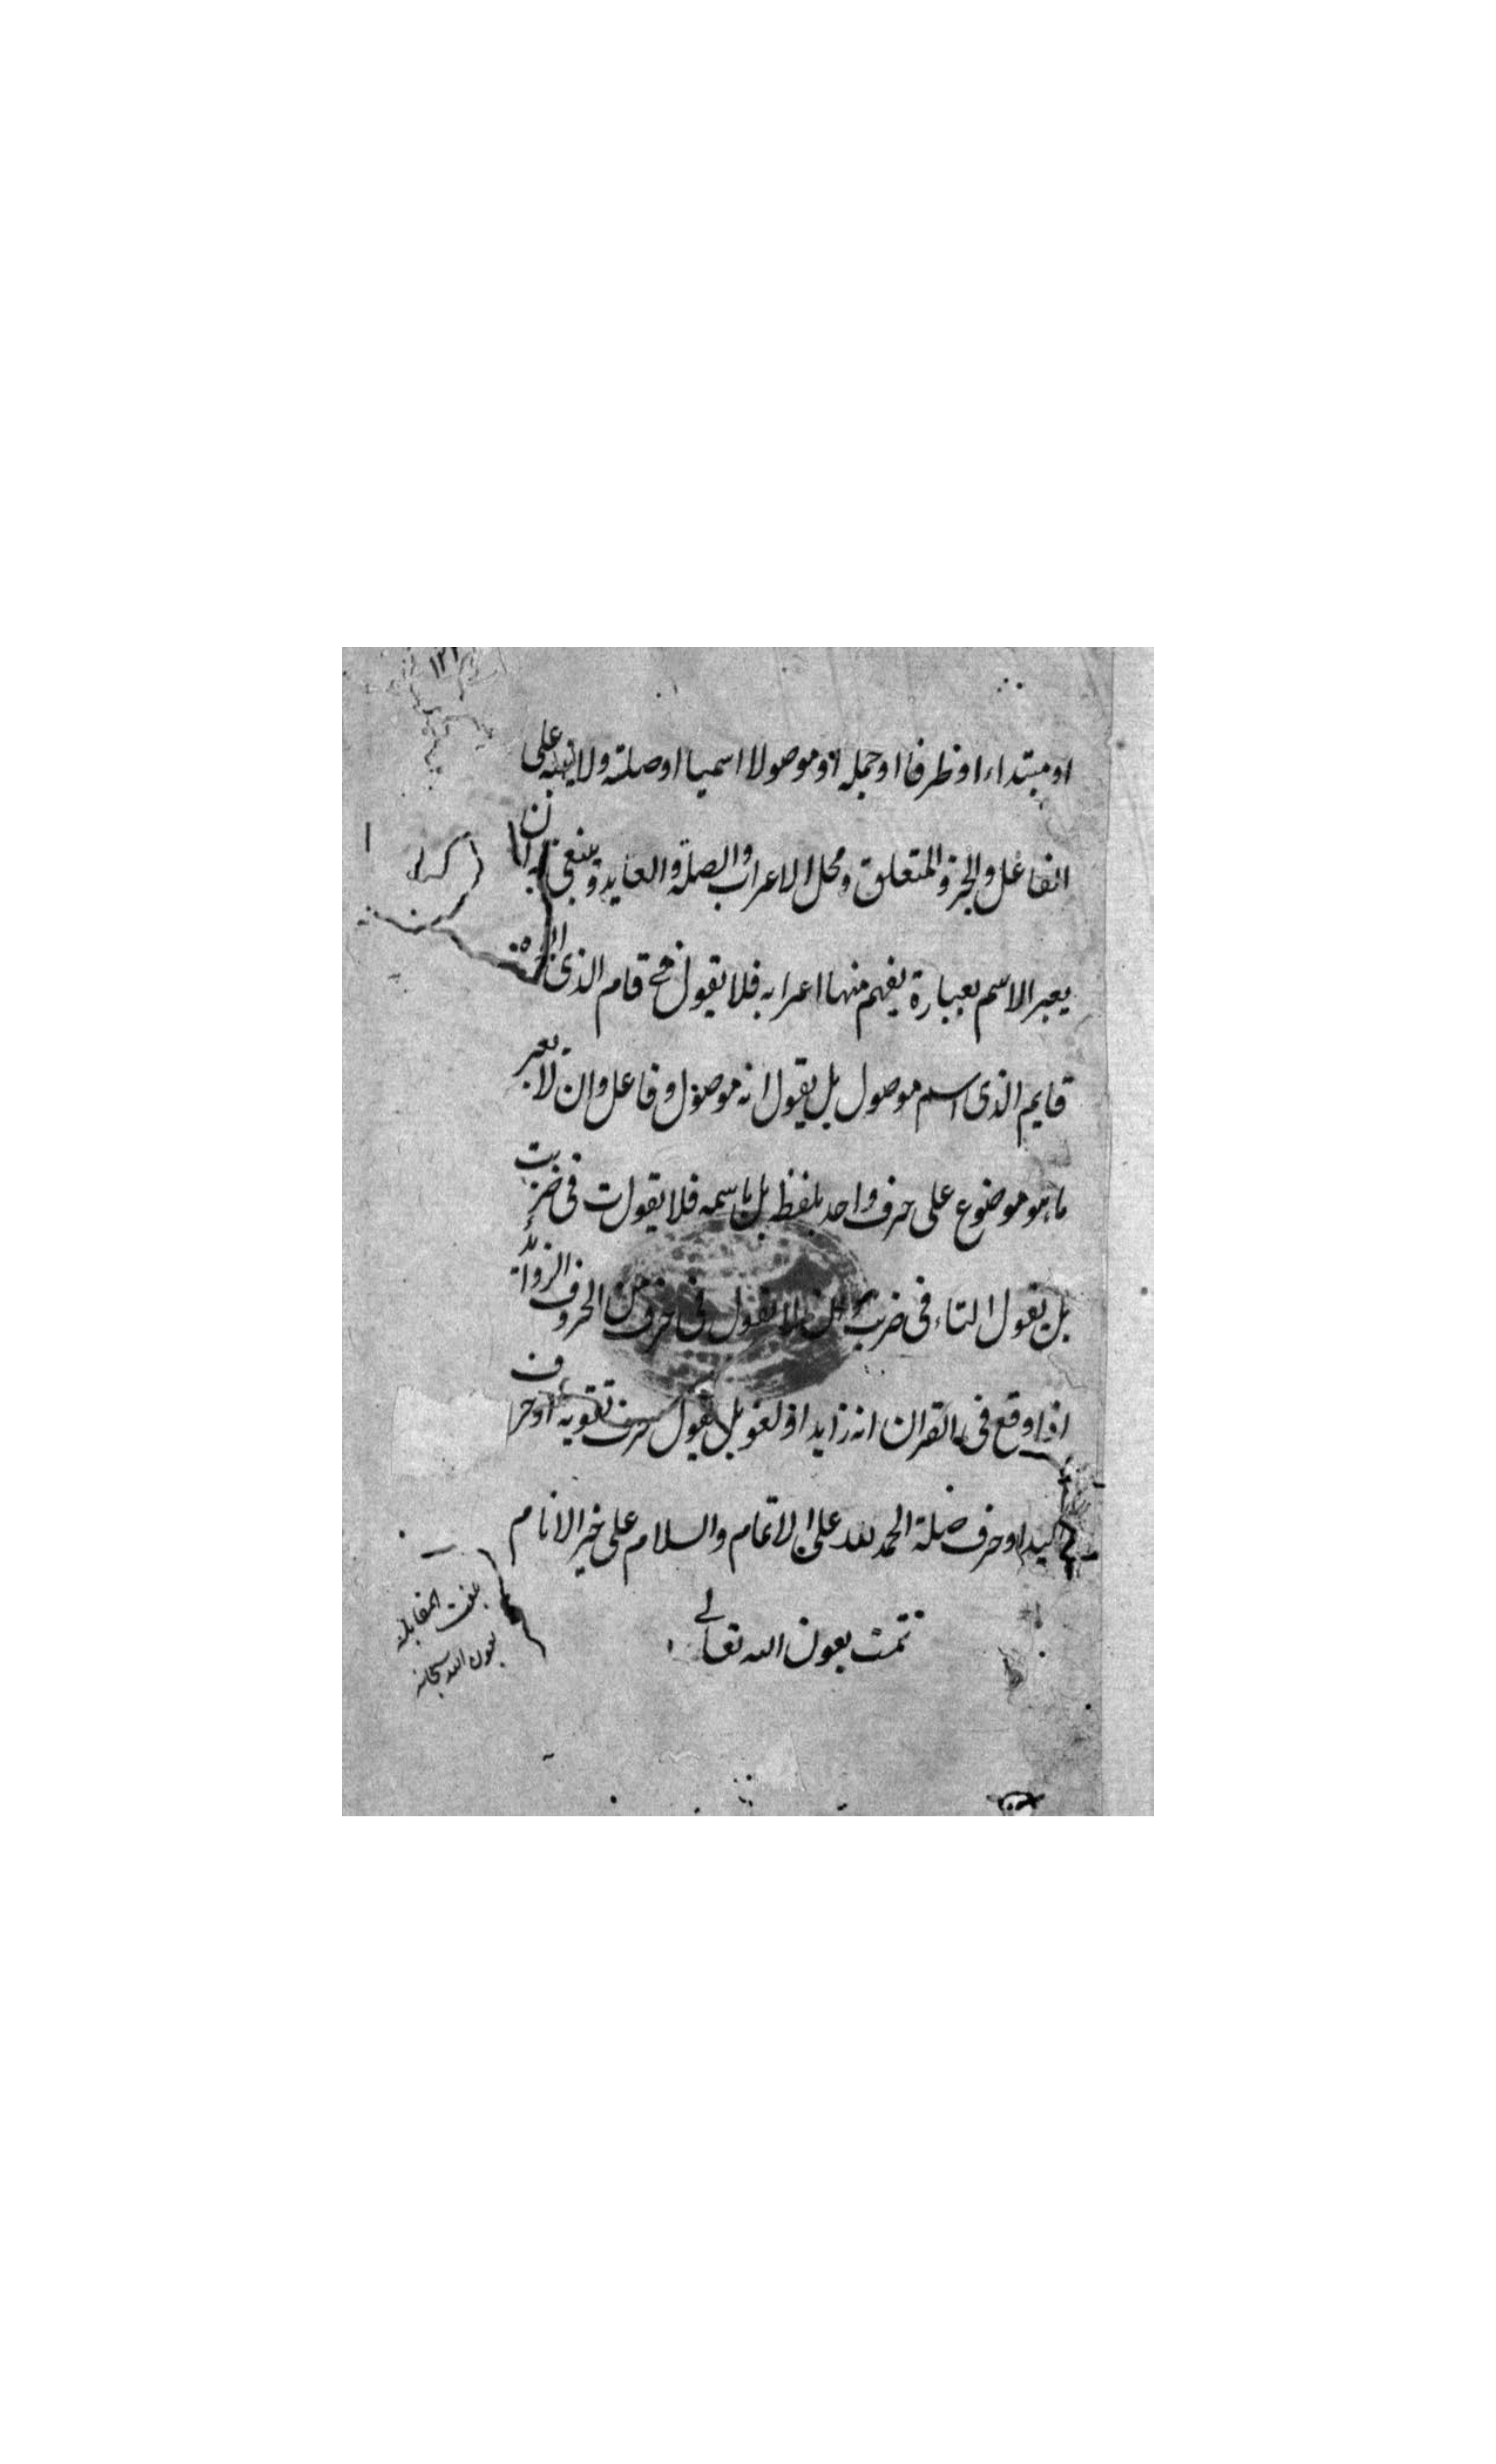 او مبتداء او ظرفا او جمله او موصولا اسميا او صلته ولا ينبه على
الفاعل والخبر والمتعلق ومحل الاعراب والصلة والعايد وينبغى ان
يعبر الاسم بعبارة يفهم منها اعرابه فلا يقول فى قام الذى
قايم الذى اسم موصول بل يقول انه موصول وفاعل وان لا يعبر
ما هو موضوع على حرف واحد بلفظ بل باسمه فلا يقول ت فى ضربت
بل يقول التاء فى ضربت وان لا يقول فى حرف من الحروف الزوائد
اذا وقع فى القران انه زايد او لغو بل يقول حرف تقويه او حرف
تاكيد او حرف صلة الحمد لله على الاتمام والسلام على خير الانام
تمت بعون الله تعالى
بلغت المقابلة
بعون الله سبحانه